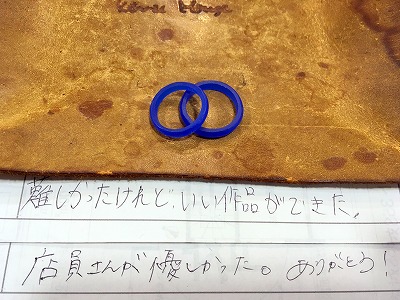 難しかったけれど、いい作品ができた。
店員さんが優しかった。ありがとう!